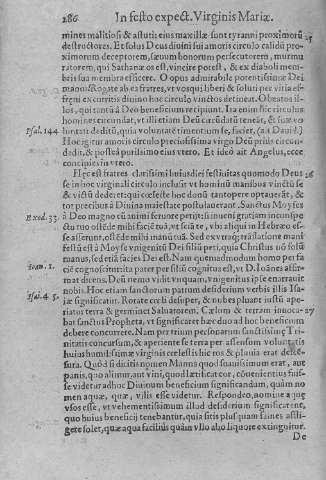 286 In festo expect. Virginis Mariæ.
mines malitiosi & astuti eius maxillæ sunt tyranni proximorũ
destructores. Et solus Deus diuini sui amoris circulo calidũ pro-
ximorum deceptorem, sæuum bonorum persecutorem, murmu
ratorem, qui Sathanæ os est, vincire potest, & ex diaboli mem-
bris sua membra efficere. O opus admirabile potentissimæ Dei
circulo vinctos detinet. O beatos il-
los, qui tanti à Deo beneficium recipiunt.
homines circundat, vt illi etiam Deũ circũdatũ teneãt, & suæ vo
Psal. 144. luntati deditũ, quia voluntatẽ timentium se, faciet, (ait Dauid.)
Hoc igitur amoris circulo preciosissima virgo Deũ prius circun-
dedit, & posteà purissimo eius vtero. Et ideò ait Angelus, ecce
concipies in vtero.
Hęc est fratres clarissimi huiusdiei festiuitas quomodo Deus 26
se in hoc virginali circulo inclusit vt hominũ manibus vinctũ se
& victũ dedisset: qui
ret, & pro tanta Diuina maiestate postulauerat. Sanctus Moyses
Exod. 33. à Deo magno cũ animi feruore petijt: si inueni gratiam inconspe
ctu tuo ostẽde mihi faciẽ tuã, vt
se asserunt, ostẽde mihi manũ tuã. Sed ex vtraq; traslatione mani
festũ est à Moyse vnigenitũ Dei filiũ peti, quia Christus nõ solũ
manus, sed etiã facies Dei est. Nam quemadmodum homo per fa
Ioan. 1. ciẽ cognoscitur ita pater per filiũ cognitus est, vt D. Ioánes affir-
mat dicens. Deũ nemo vidit vnquam, vnigenitus ipse enarrauit
nobis. Hoc etiam sanctorum patrum desiderium verbis illis Isa-
Isai. 45. iæ significatur. Rorate cœli desuper, & nubes pluant iustũ ape-
riatur terra & germinet Saluatorem. Cælum & terram inuoca- 27
bat sanctus Propheta, vt significaret hæc duo ad hoc beneficium
debere concurrere. Nam per trium personarum sanctissimę Tri-
nitatis concursum, & aperiente se terra per assensum voluntatis
huius humilissimæ virginis cœlestis hic ros & pluuia erat desce-
sura. Quòd si dicitis nomen Manná quod suauissimum erat, aut
panis, quo alimur, aut vini, quod lætificat cor, cõuenientius fuis-
se videtur ad hoc Diuinum beneficium significandum, quàm no
men aquæ, quæ, vilis esse videtur. Respondeo, nomine aquę
vsos esse, vt vehementissimum illud desiderium significarent,
quo huius beneficij tenebantur, quia sitis plus quam fames affli-
gere solet, quæ aqua facilius quàm vllo alio liquore extinguitur.
De